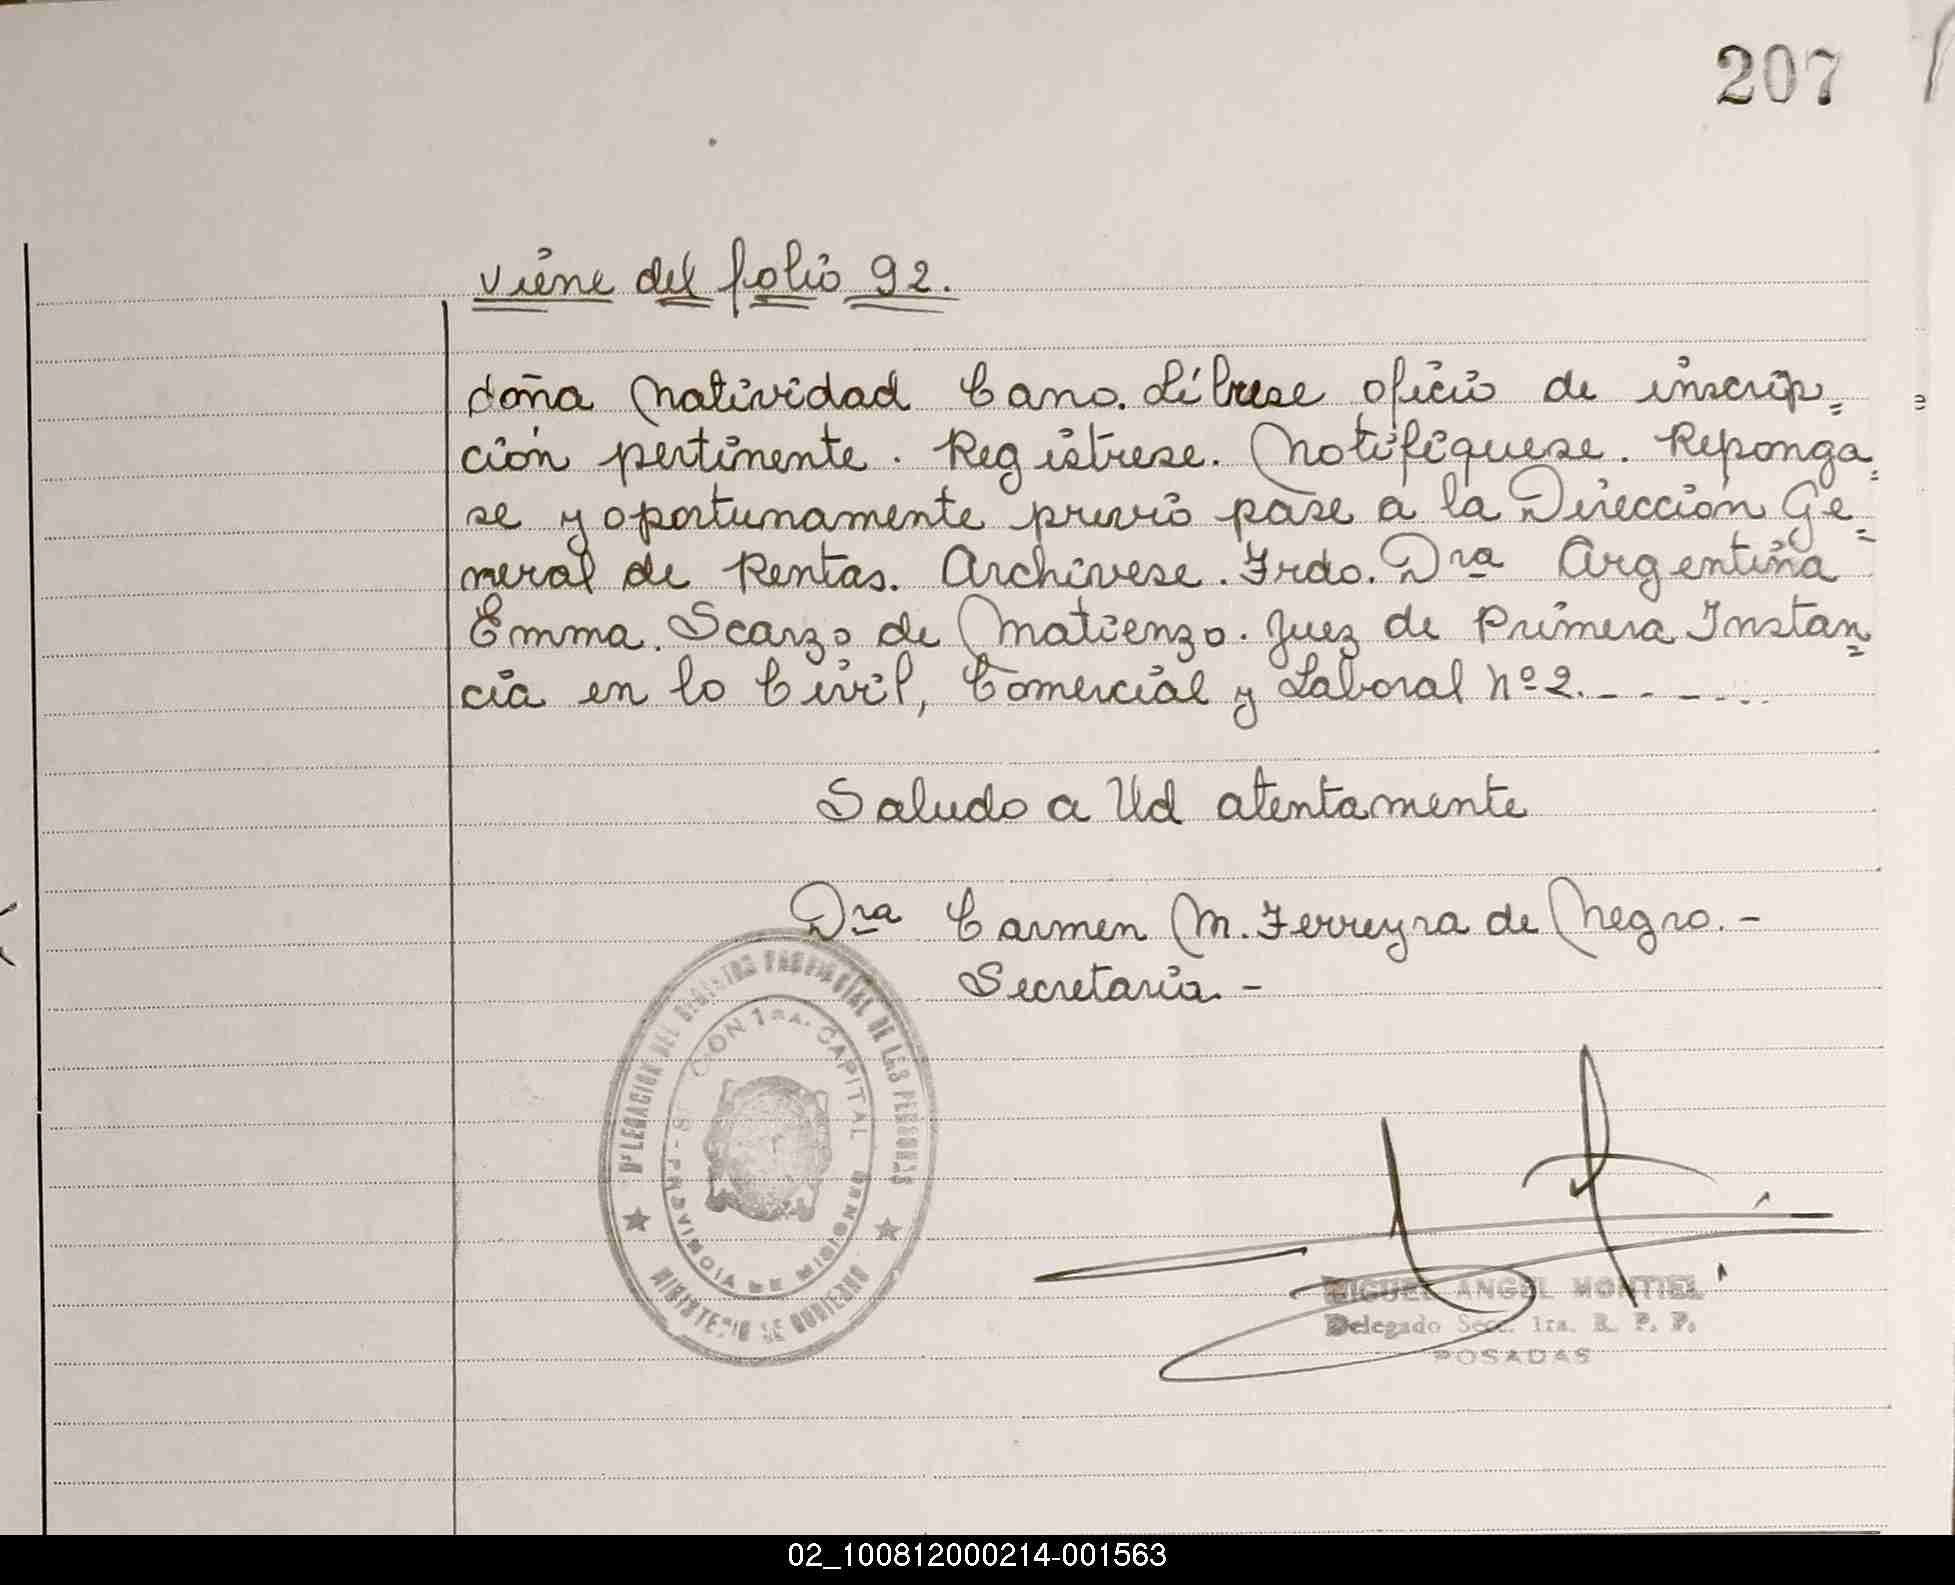 207
viene del folio 92.
doña Natividad Cano. Líbrese oficio de inscrip=
ción pertinente. Regístrese. Notifíquese. Reponga=
se y oportunamente previo pase a la Dirección Ge=
neral de Rentas. Archívese. Frdo. Dra Argentina
Emma. Scarzo de Matienzo. Juez de Primera Instan=
cia en lo Civil, Comercial y Laboral Nº 2. - - - - - -
Saludo a Ud atentamente
Dra Carmen M. Ferreyra de Negro. -
Secretaria. -
DELEGACION DEL REGISTRO PROVINCIAL DE LAS PERSONAS
MINISTERIO DE GOBIERNO
SECCION 1RA. CAPITAL
PROVINCIA DE MISIONES
MIGUEL ANGEL MONTIEL
Delegado Secc. 1ra. R. P. P.
POSADAS
02_100812000214-001563